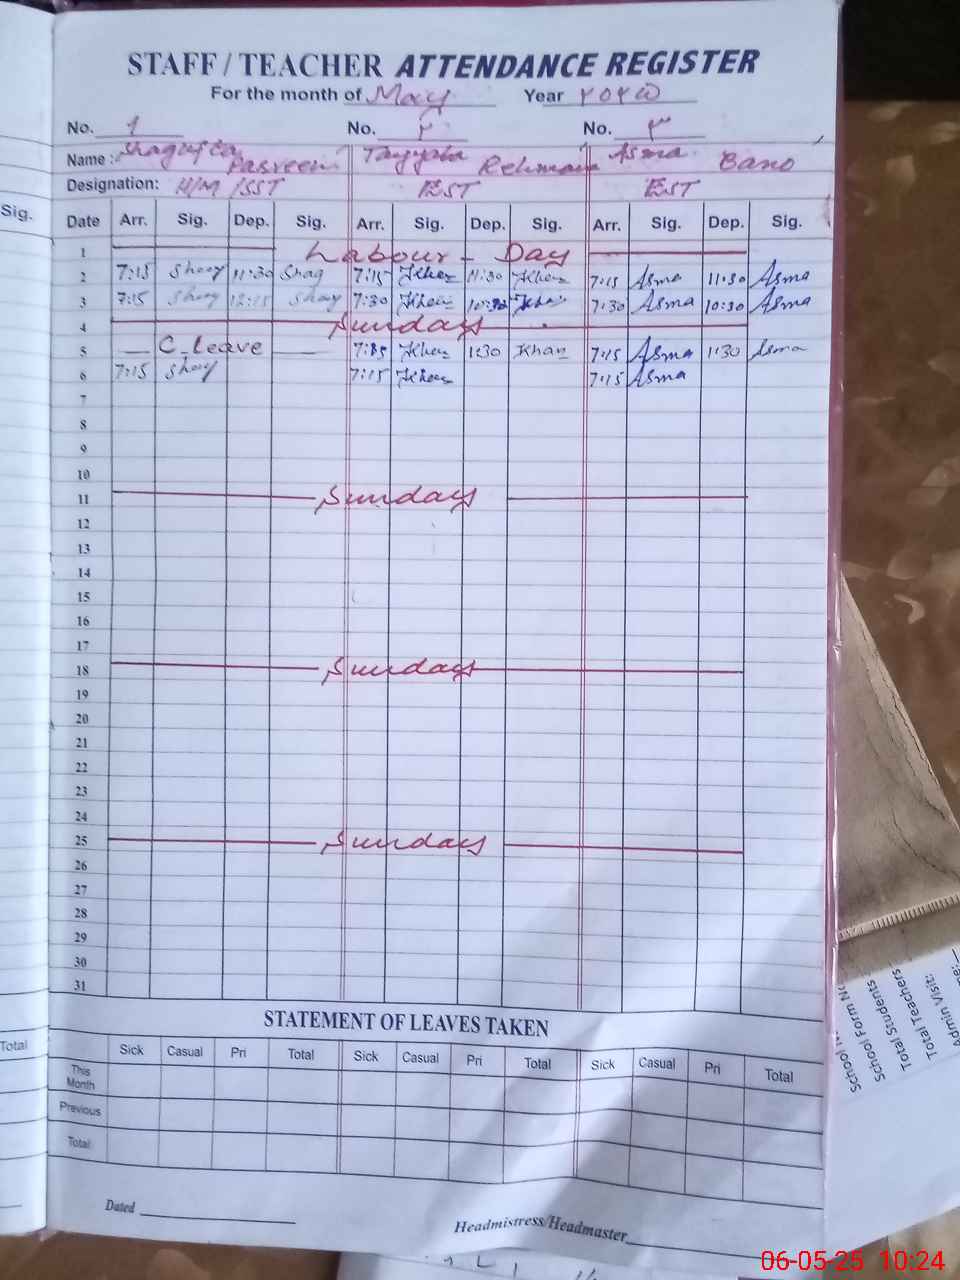 STAFF / TEACHER ATTENDANCE REGISTER
For the month of May Year ۲۰۲۵
No. ۱ No. ۲ No. ۳
Name : Shagufta Parveen Tayyaba Rehman Asma Bano
Designation: H/M /SST EST EST
Sig. Date Arr. Sig. Dep. Sig. Arr. Sig. Dep. Sig. Arr. Sig. Dep. Sig.
1 Labour - Day
2 7:15 Shag 11:30 Shag 7:15 Khan 11:30 Khan 7:15 Asma 11:30 Asma
3 7:15 Shag 12:15 Shag 7:30 Khan 10:30 Khan 7:30 Asma 10:30 Asma
4 Sundays
5 — C_Leave — 7:15 Khan 1:30 Khan 7:15 Asma 1:30 Asma
6 7:15 Shag 7:15 Khan 7:15 Asma
7
8
9
10
11 Sundays
12
13
14
15
16
17
18 Sundays
19
20
21
22
23
24
25 Sundays
26
27
28
29
30
31
STATEMENT OF LEAVES TAKEN
Sick Casual Pri Total Sick Casual Pri Total Sick Casual Pri Total
This Month
Previous
Total
Total
Dated
Headmistress/Headmaster
School Form No
Total Students
Total Teachers
Admin Visit:
06-05-25 10:24